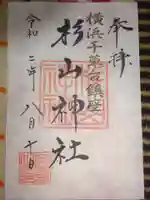 奉拝
横浜千草台鎮座
杉山神社
令和二年八月十日